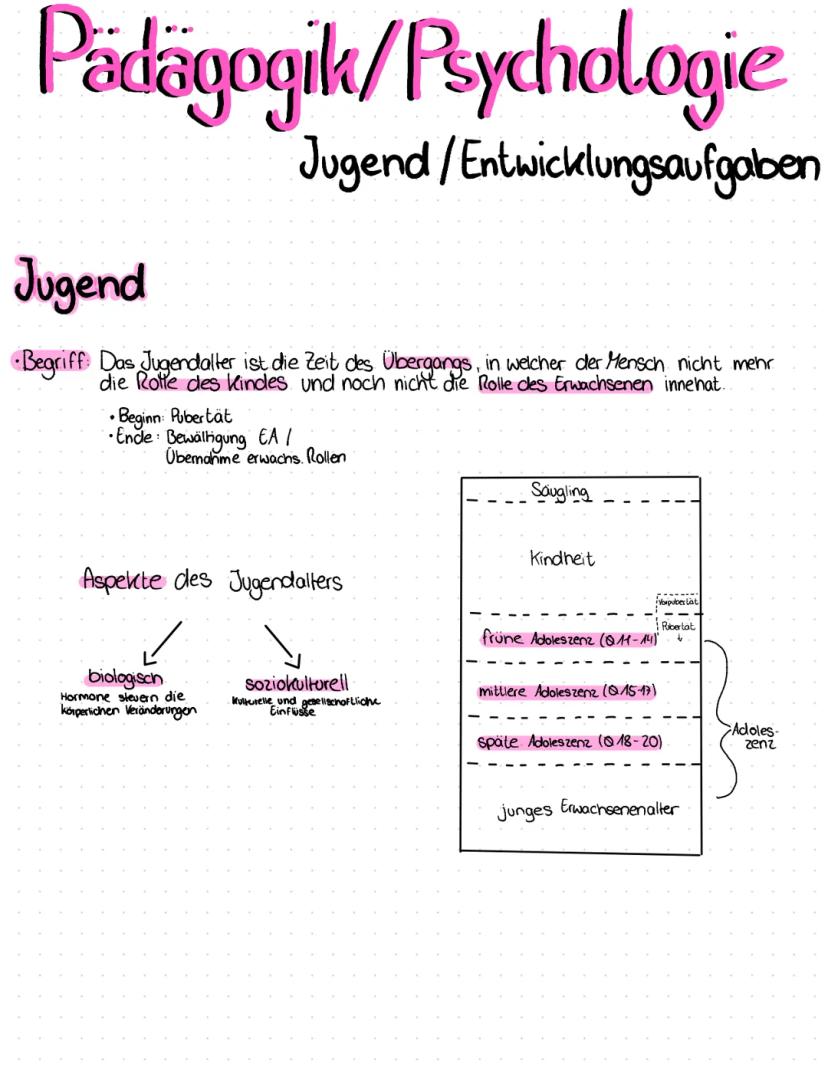 Pädägogik/Psychologie
Jugend/Entwicklungsaufgaben
Jugend
• Begriff: Das Jugendalter ist die Zeit des Übergangs, in welcher der Mensch nicht mehr
die Rolle des Kindes und noch nicht die Rolle des Erwachsenen innehat.
• Beginn: Pubertät
• Ende: Bewältigung EA /
Übernahme erwachs. Rollen
Säugling
Kindheit
Vorpubertät
Pubertät
frühe Adoleszenz (Ø 11-14)
mittlere Adoleszenz (Ø 15-17)
späte Adoleszenz (Ø 18-20)
junges Erwachsenenalter
Adoles-
zenz
Aspekte des Jugendalters
biologisch
Hormone steuern die
körperlichen Veränderungen
soziokulturell
kulturelle und gesellschaftliche
Einflüsse